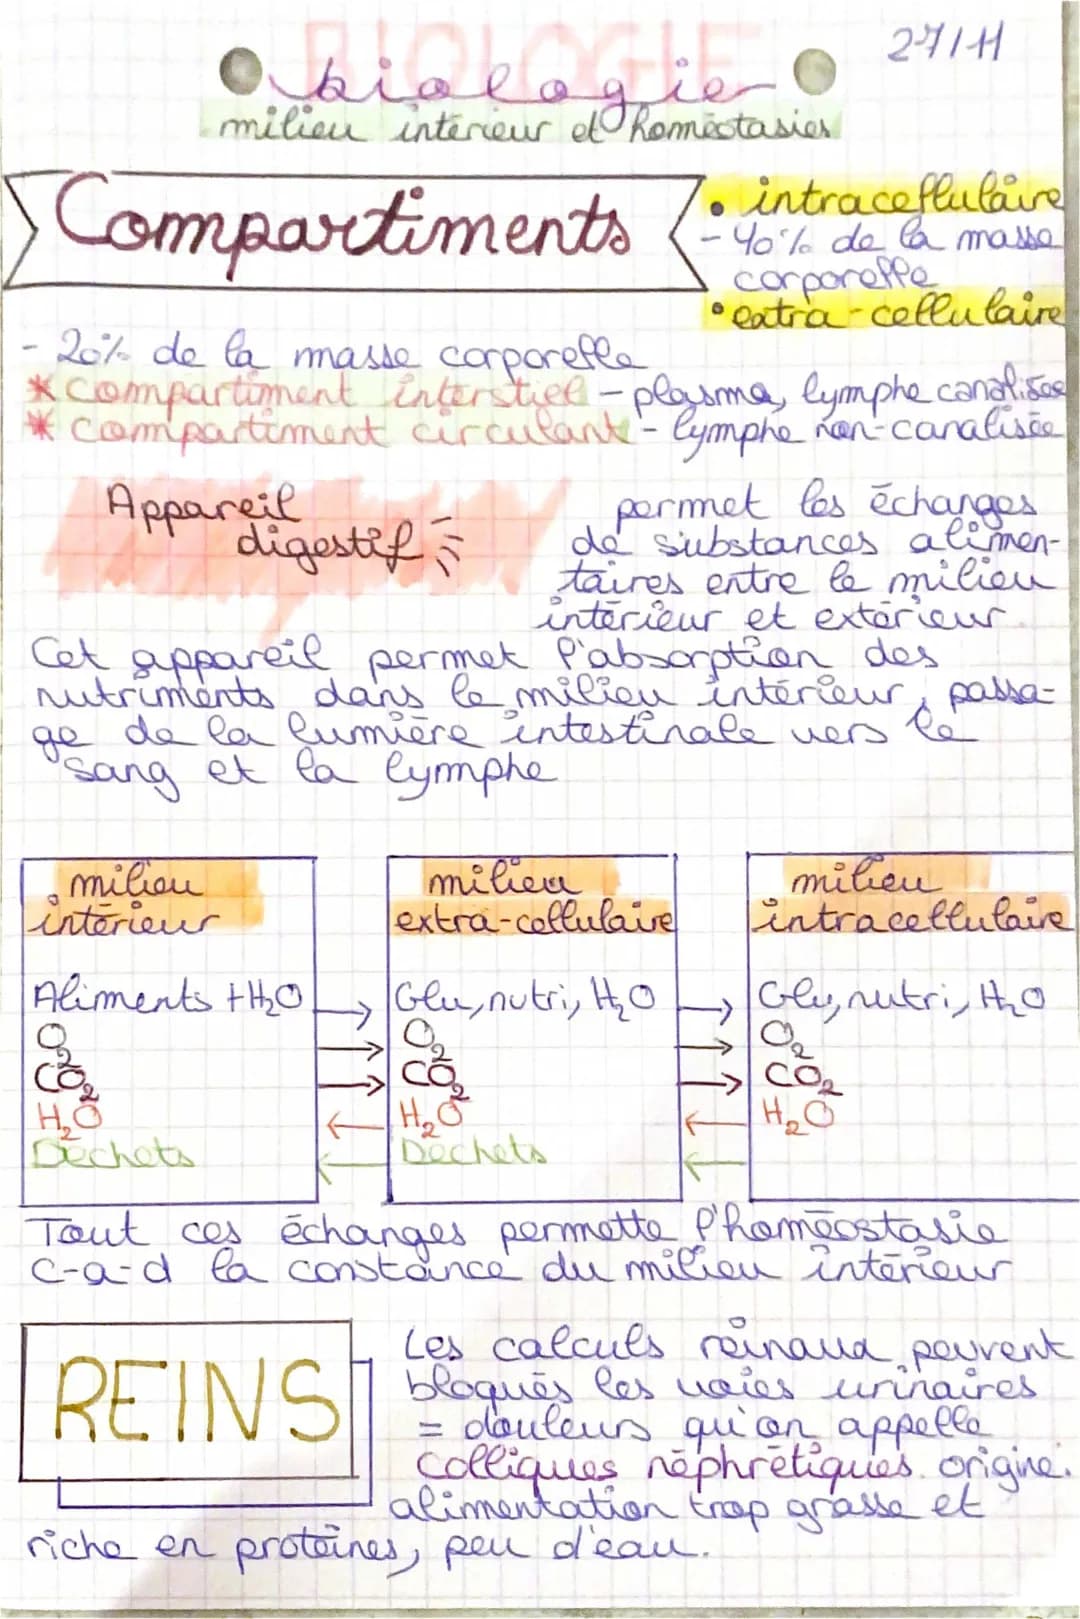 27/11
BIOLOGIE
biologie
milieu intérieur et homéotasies
Compartiments
• intracellulaire
- 40% de la masse
corporelle
• extra-cellulaire
- 20% de la masse corporelle
* Compartiment interstiel - plasma, lymphe canalisée
* Compartiment circulant - lymphe non-canalisée
Appareil
digestif
permet les échanges
de substances alimen-
taires entre le milieu
intérieur et extérieur.
Cet appareil permet l'absorption des
nutriments dans le milieu intérieur, passa-
ge de la lumière intestinale vers le
sang et la lymphe
milieu
intérieur
Aliments + H₂O
O₂
CO₂
H₂O
Déchets
milieu
extra-cellulaire
Glu, nutri, H₂O
O₂
CO₂
H₂O
Déchets
milieu
intracellulaire
Glu, nutri, H₂O
O₂
CO₂
H₂O
Tout ces échanges permette l'homéostasie
c-a-d la constance du milieu intérieur
REINS
Les calculs réinaux peuvent
bloqués les voies urinaires
= douleurs qu'on appelle
Colliques néphrétiques. origine.
alimentation trop grasse et
riche en protéines, peu d'eau.